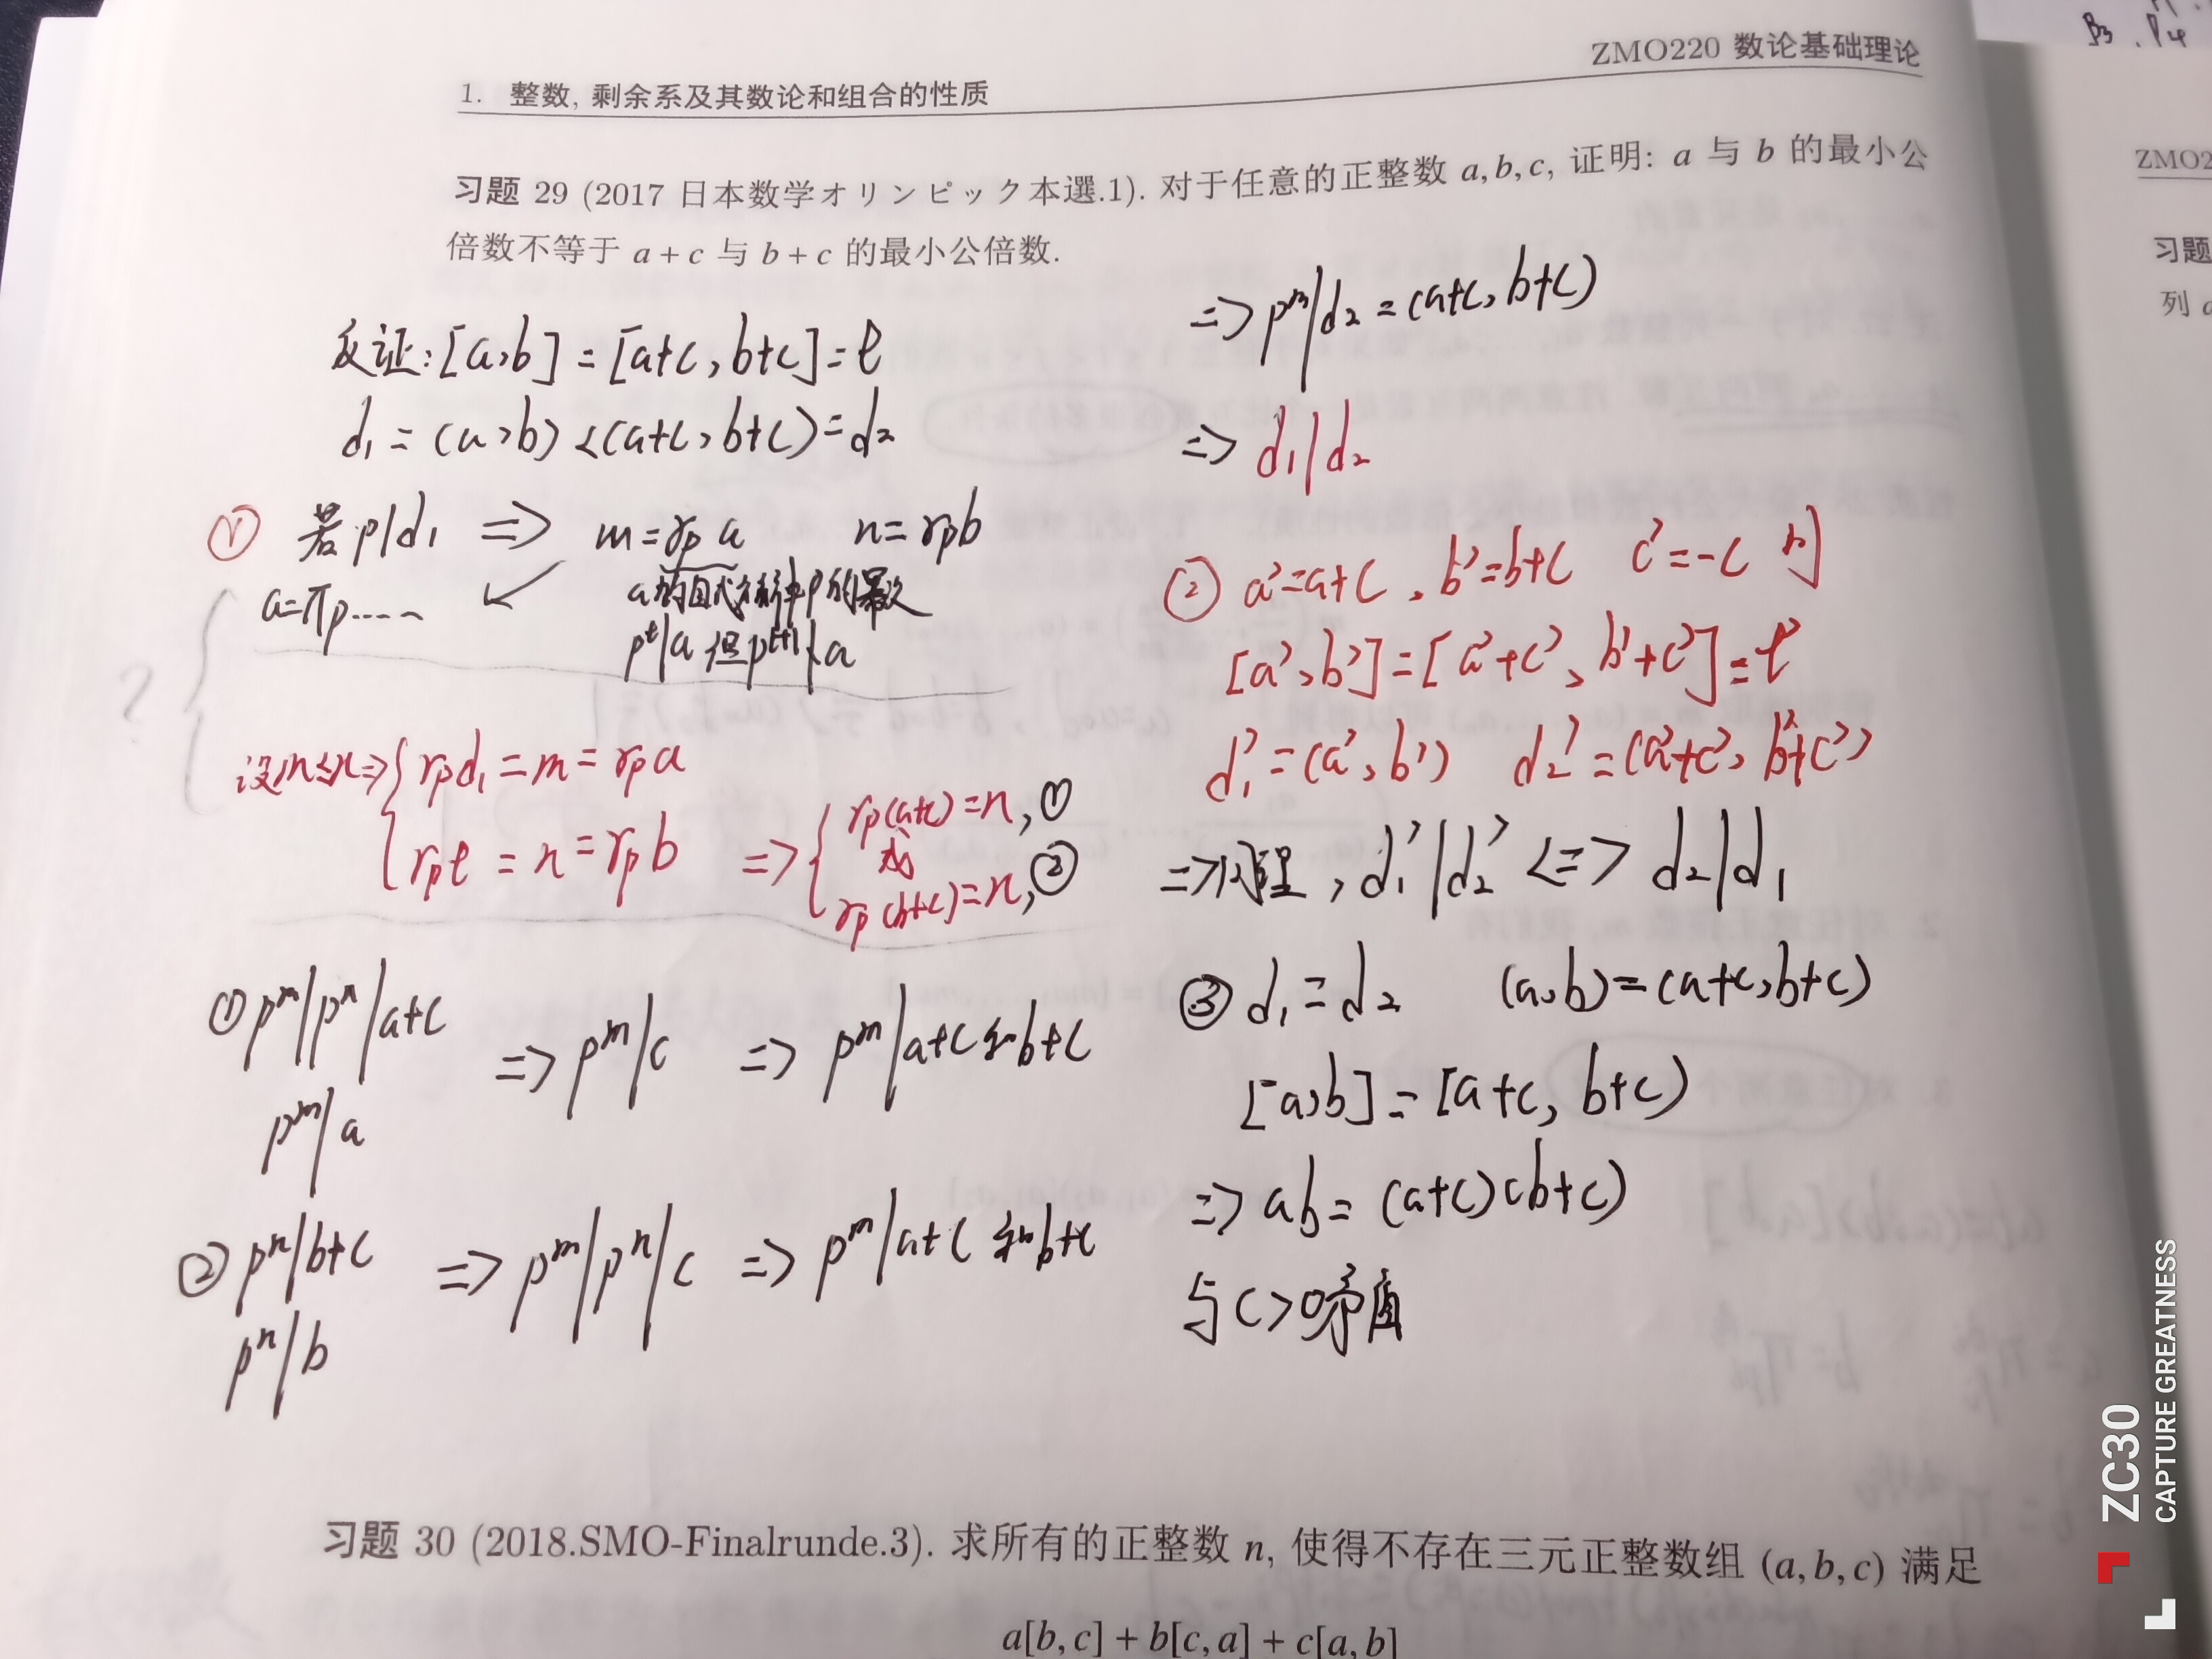 1. 整数, 剩余系及其数论和组合的性质
ZMO220 数论基础理论
习题 29 (2017 日本数学オリンピック本選.1). 对于任意的正整数 a, b, c, 证明: a 与 b 的最小公
倍数不等于 a + c 与 b + c 的最小公倍数.
反证: [a,b] = [a+c, b+c] = l
d₁ = (a,b) < (a+c, b+c) = d₂
① 若 p|d₁ => m = rₚa n = rₚb
a = πp.....
pᵗ|a 但 pᵗ⁺¹∤a
设 m≤n => { rₚd₁ = m = rₚa
rₚl = n = rₚb => { rₚ(a+c) = n, ①
或
rₚ(b+c) = n, ②
?
① pᵐ|pⁿ|a+c => pᵐ|c => pᵐ|a+c 和 b+c
pᵐ|a
② pⁿ|b+c => pᵐ|pⁿ|c => pᵐ|a+c 和 b+c
pⁿ|b
=> pᵐ|d₂ = (a+c, b+c)
=> d₁|d₂
② a' = a+c, b' = b+c c' = -c 则
[a', b'] = [a'+c', b'+c'] = l'
d₁' = (a', b') d₂' = (a'+c', b'+c')
=> 同理, d₁'|d₂' <=> d₂|d₁
③ d₁ = d₂ (a,b) = (a+c, b+c)
[a,b] = [a+c, b+c)
=> ab = (a+c)(b+c)
与 c>0 矛盾
习题 30 (2018.SMO-Finalrunde.3). 求所有的正整数 n, 使得不存在三元正整数组 (a, b, c) 满足
a[b, c] + b[c, a] + c[a, b]
P₃ . P₄
ZMO2
习题
列 a
ZC30
CAPTURE GREATNESS